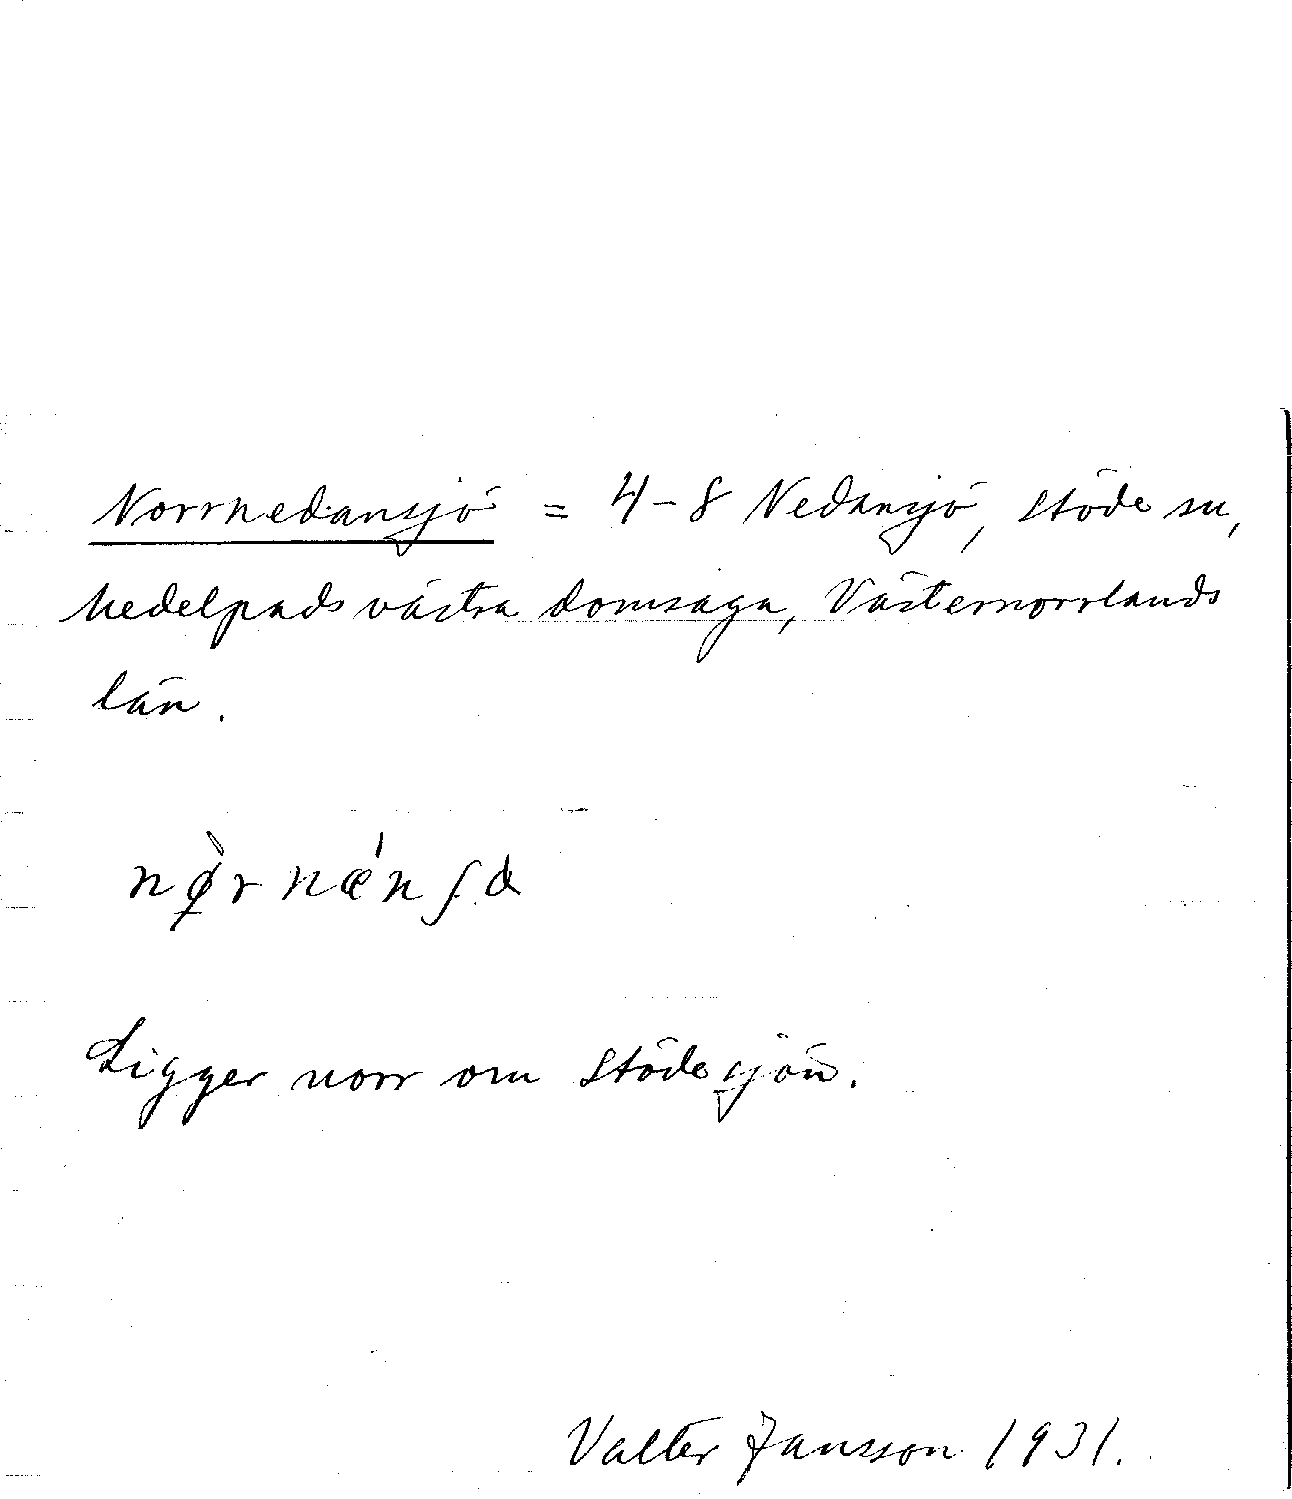 Norrnedansjö = 4-8 Nedansjö, Stöde sn,
Medelpads västra domsaga, Västernorrlands
län.
Ligger norr om Stödesjön.
Valter Jansson 1931.